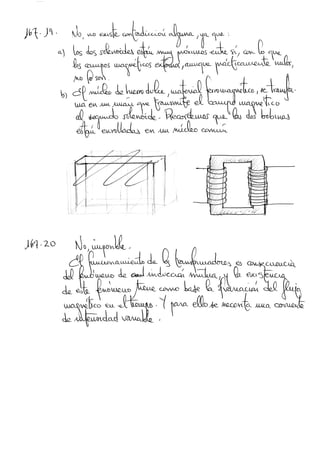 147-19. No, no existe contradicción alguna, ya que:
a) los dos solenoides están muy próximos entre sí, con lo que
los campos magnéticos, aunque prácticamente nulos,
no lo son.
b) el núcleo de hierro dulce, material ferromagnético, se transfor-
ma en un imán que transmite el campo magnético
al segundo solenoide. Recordemos que las dos bobinas
están enrolladas en un núcleo común
147-20 No, imposible.
El funcionamiento de los transformadores es consecuencia
del fenómeno de inducción mutua, y la existencia
de este fenómeno tiene como base la variación del flujo
magnético en el tiempo. Y para ello se necesita una corriente
de intensidad variable.